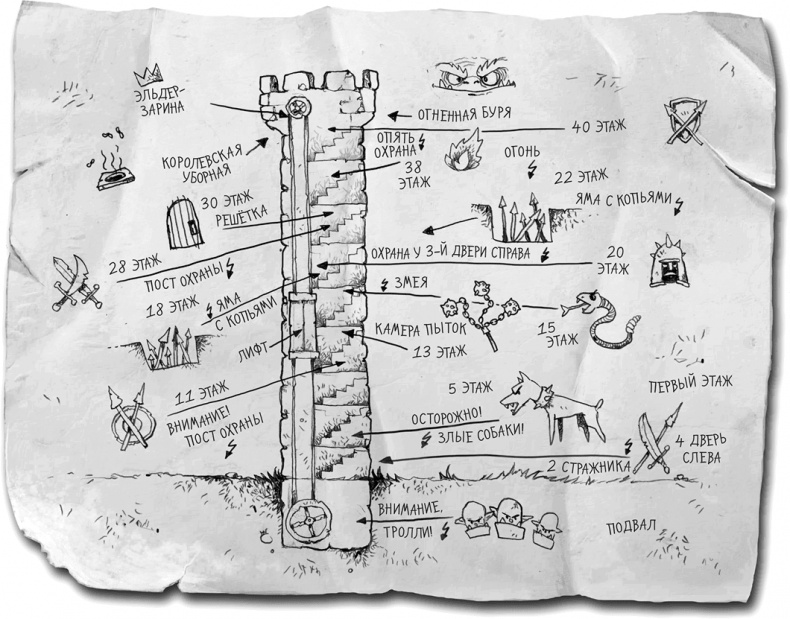 ЭЛЬДЕР-
ЗАРИНА
ОГНЕННАЯ БУРЯ
40 ЭТАЖ
ОПЯТЬ
ОХРАНА
38
ЭТАЖ
ОГОНЬ
КОРОЛЕВСКАЯ
УБОРНАЯ
22 ЭТАЖ
ЯМА С КОПЬЯМИ
30 ЭТАЖ
РЕШЁТКА
28 ЭТАЖ
ПОСТ ОХРАНЫ
ОХРАНА У 3-Й ДВЕРИ СПРАВА
20
ЭТАЖ
18 ЭТАЖ
ЯМА
С КОПЬЯМИ
ЗМЕЯ
15
ЭТАЖ
ЛИФТ
КАМЕРА ПЫТОК
13 ЭТАЖ
11 ЭТАЖ
ВНИМАНИЕ!
ПОСТ ОХРАНЫ
5 ЭТАЖ
ОСТОРОЖНО!
ЗЛЫЕ СОБАКИ!
ПЕРВЫЙ ЭТАЖ
4 ДВЕРЬ
СЛЕВА
2 СТРАЖНИКА
ВНИМАНИЕ,
ТРОЛЛИ!
ПОДВАЛ